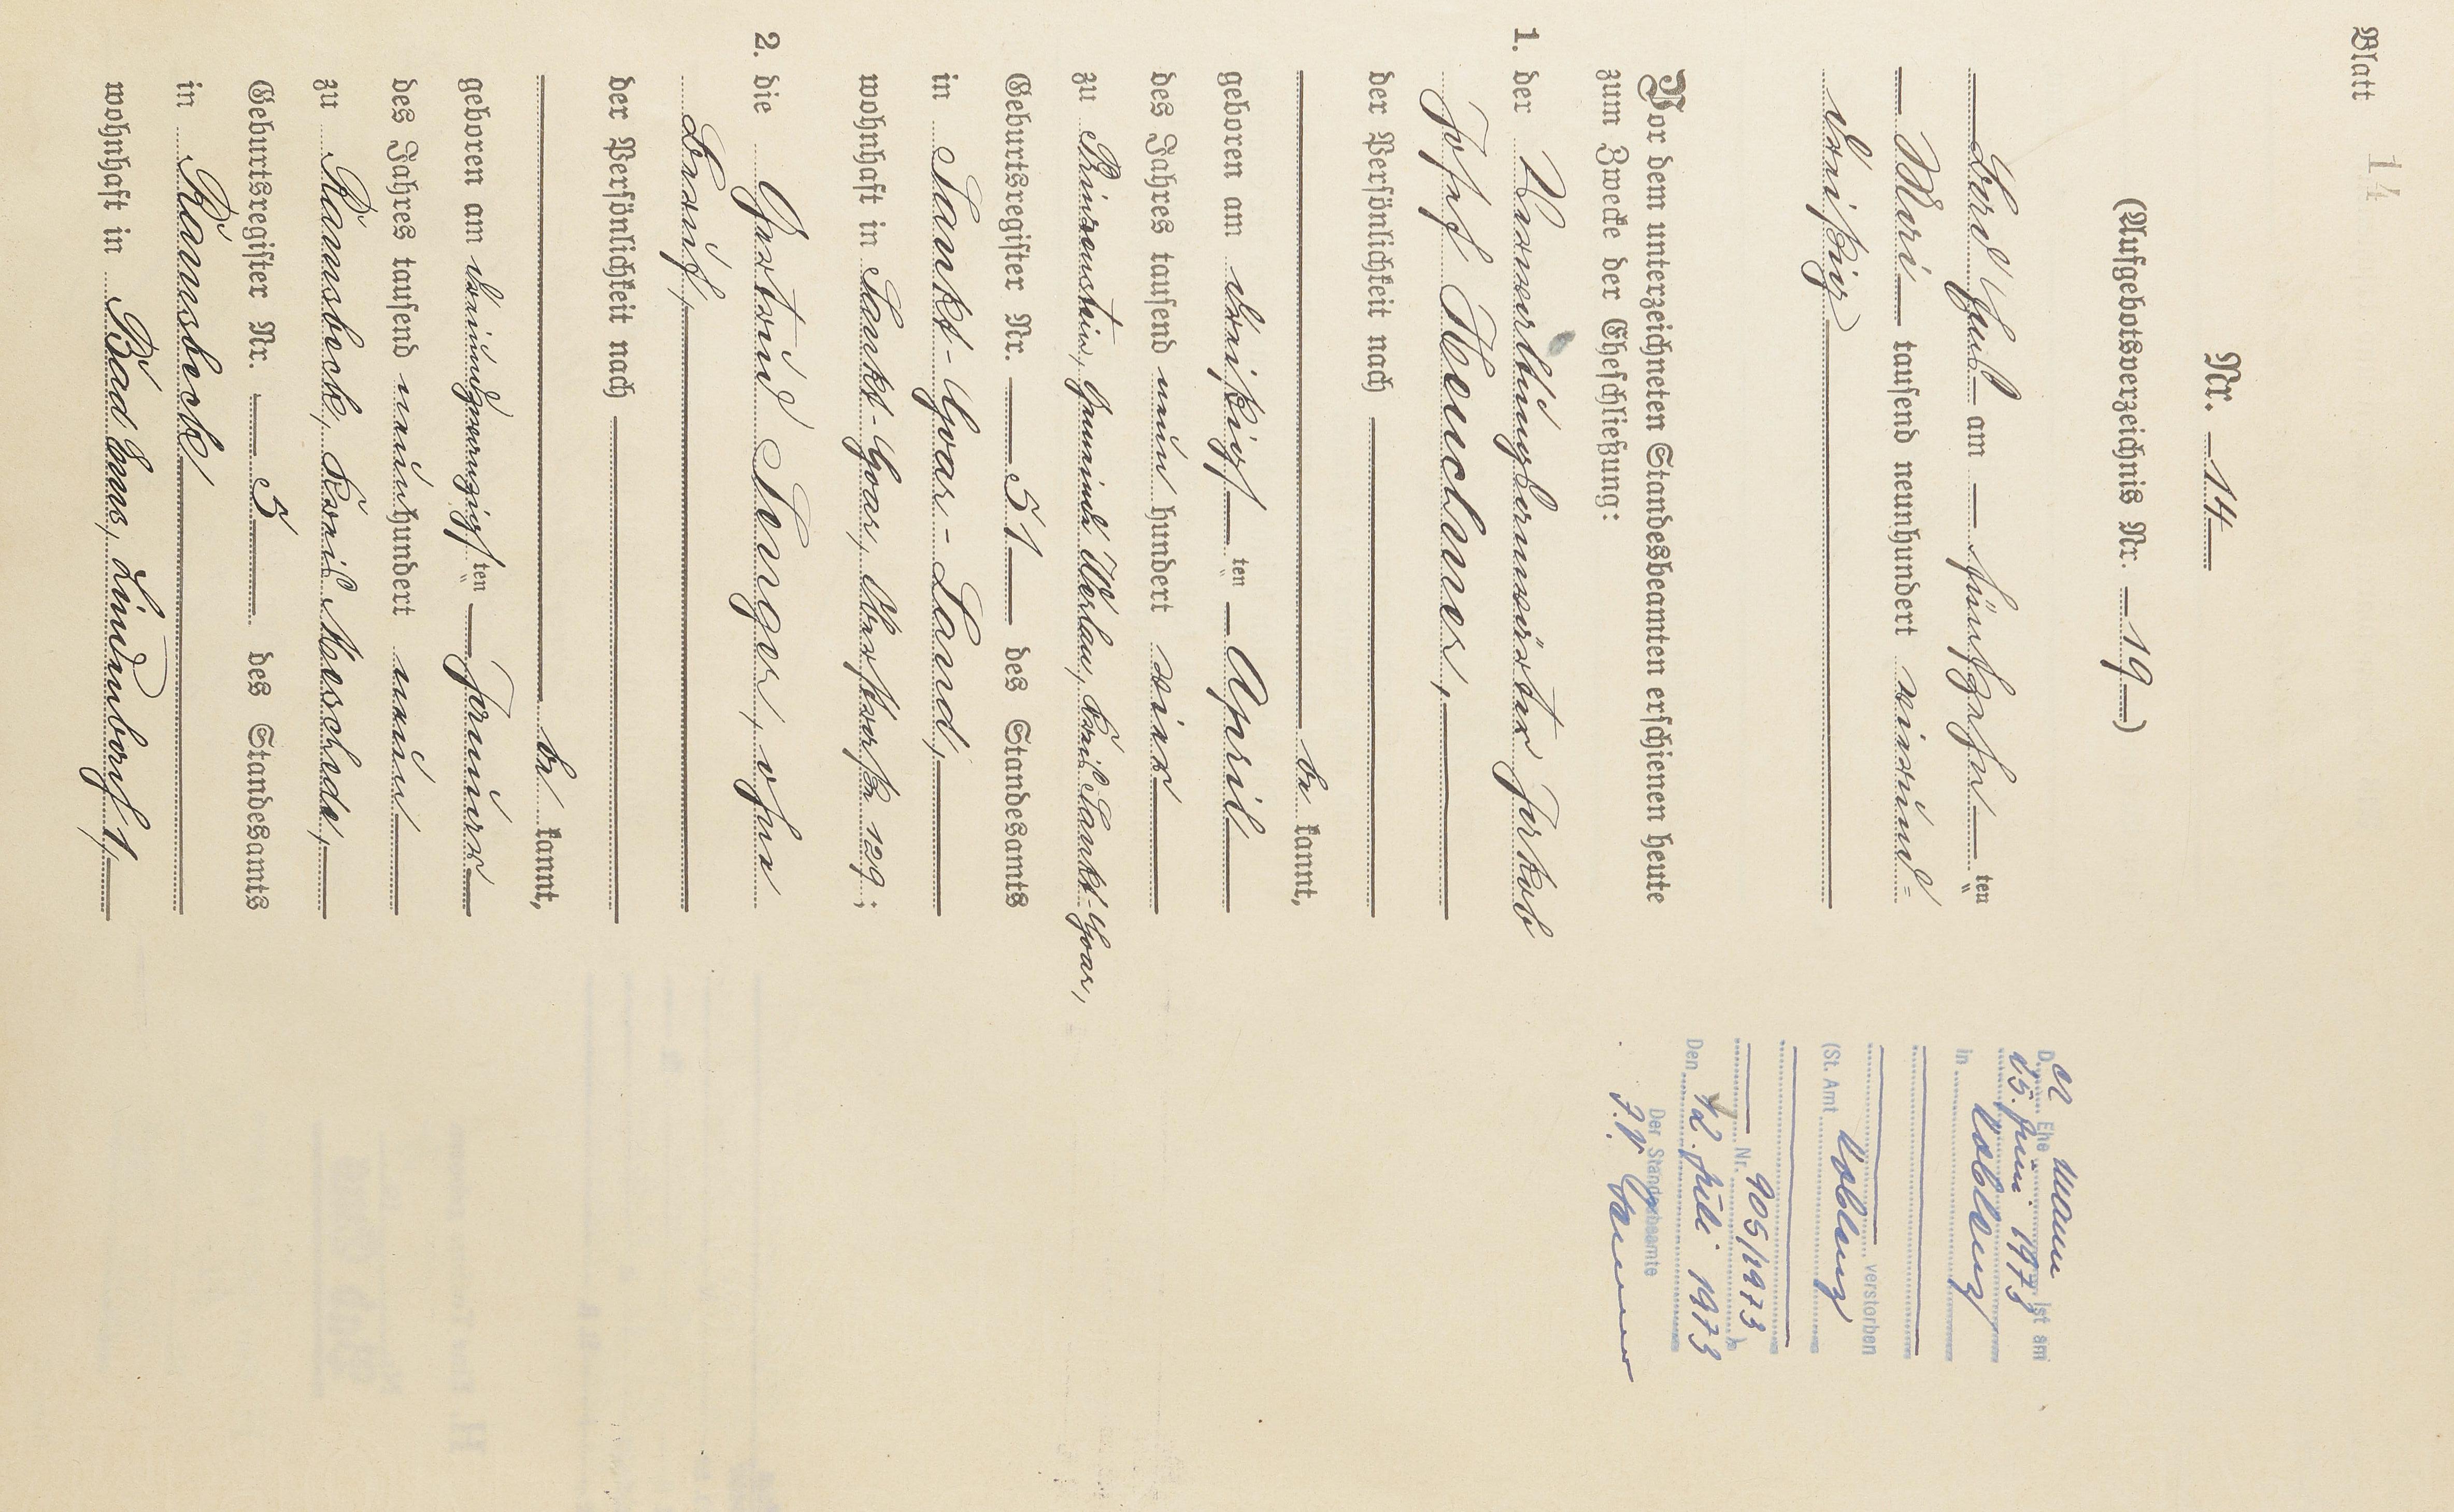 Blatt 14
Nr. 14
(Aufgebotsverzeichnis Nr. 19)
Bad Ems am fünfzehn ten
Mai tausend neunhundert vierund=
dreißig
Vor dem unterzeichneten Standesbeamten erschienen heute
zum Zwecke der Eheschließung:
1. der Verwaltungs Jakob
Josef Heuchmer,
der Persönlichkeit nach
be kannt,
geboren am dreißigs ten April
des Jahres tausend neun hundert vier
zu Prinzenstein, Gemeinde Werlau, Kreis Sankt-Goar,
Geburtsregister Nr. 51 des Standesamts
in Sankt-Goar-Land,
wohnhaft in Sankt-Goar, 129;
2. die Gertrud Senger, ohne
Beruf,
der Persönlichkeit nach
be kannt,
geboren am dreiundzwanzigs ten Januar
des Jahres tausend neunhundert neun
zu Ramsbeck, Kreis Meschede,
Geburtsregister Nr. 5 des Standesamts
in Ramsbeck
wohnhaft in Bad Ems, Lindenbach 1,
Der Mann
D. Ehe ist am
25. Juni 1973
in Koblenz
verstorben
(St. Amt Koblenz
Nr. 905/1973
Den 12. Juli 1973
Der Standesbeamte
I.V.